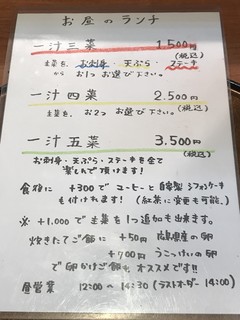 お昼のランチ
一汁三菜 1.500円
(税込)
主菜を、お刺身・天ぷら・ステーキ
から お1つ お選び下さい。
一汁四菜 2.500円
(税込)
主菜を、お2つ お選び下さい。
一汁五菜 3.500円
(税込)
お刺身・天ぷら・ステーキを全て
楽しんで頂けます!
食後に +300で コーヒーと自家製シフォンケーキ
も付けれます! (紅茶に変更も可能。)
※ +1.000で主菜を1つ追加も出来ます。
炊きたてご飯に +50円 広島県産の卵
+700円 うこっけいの卵
で 卵かけご飯も オススメです!!
昼営業 12:00〜14:30 (ラストオーダー 14:00)